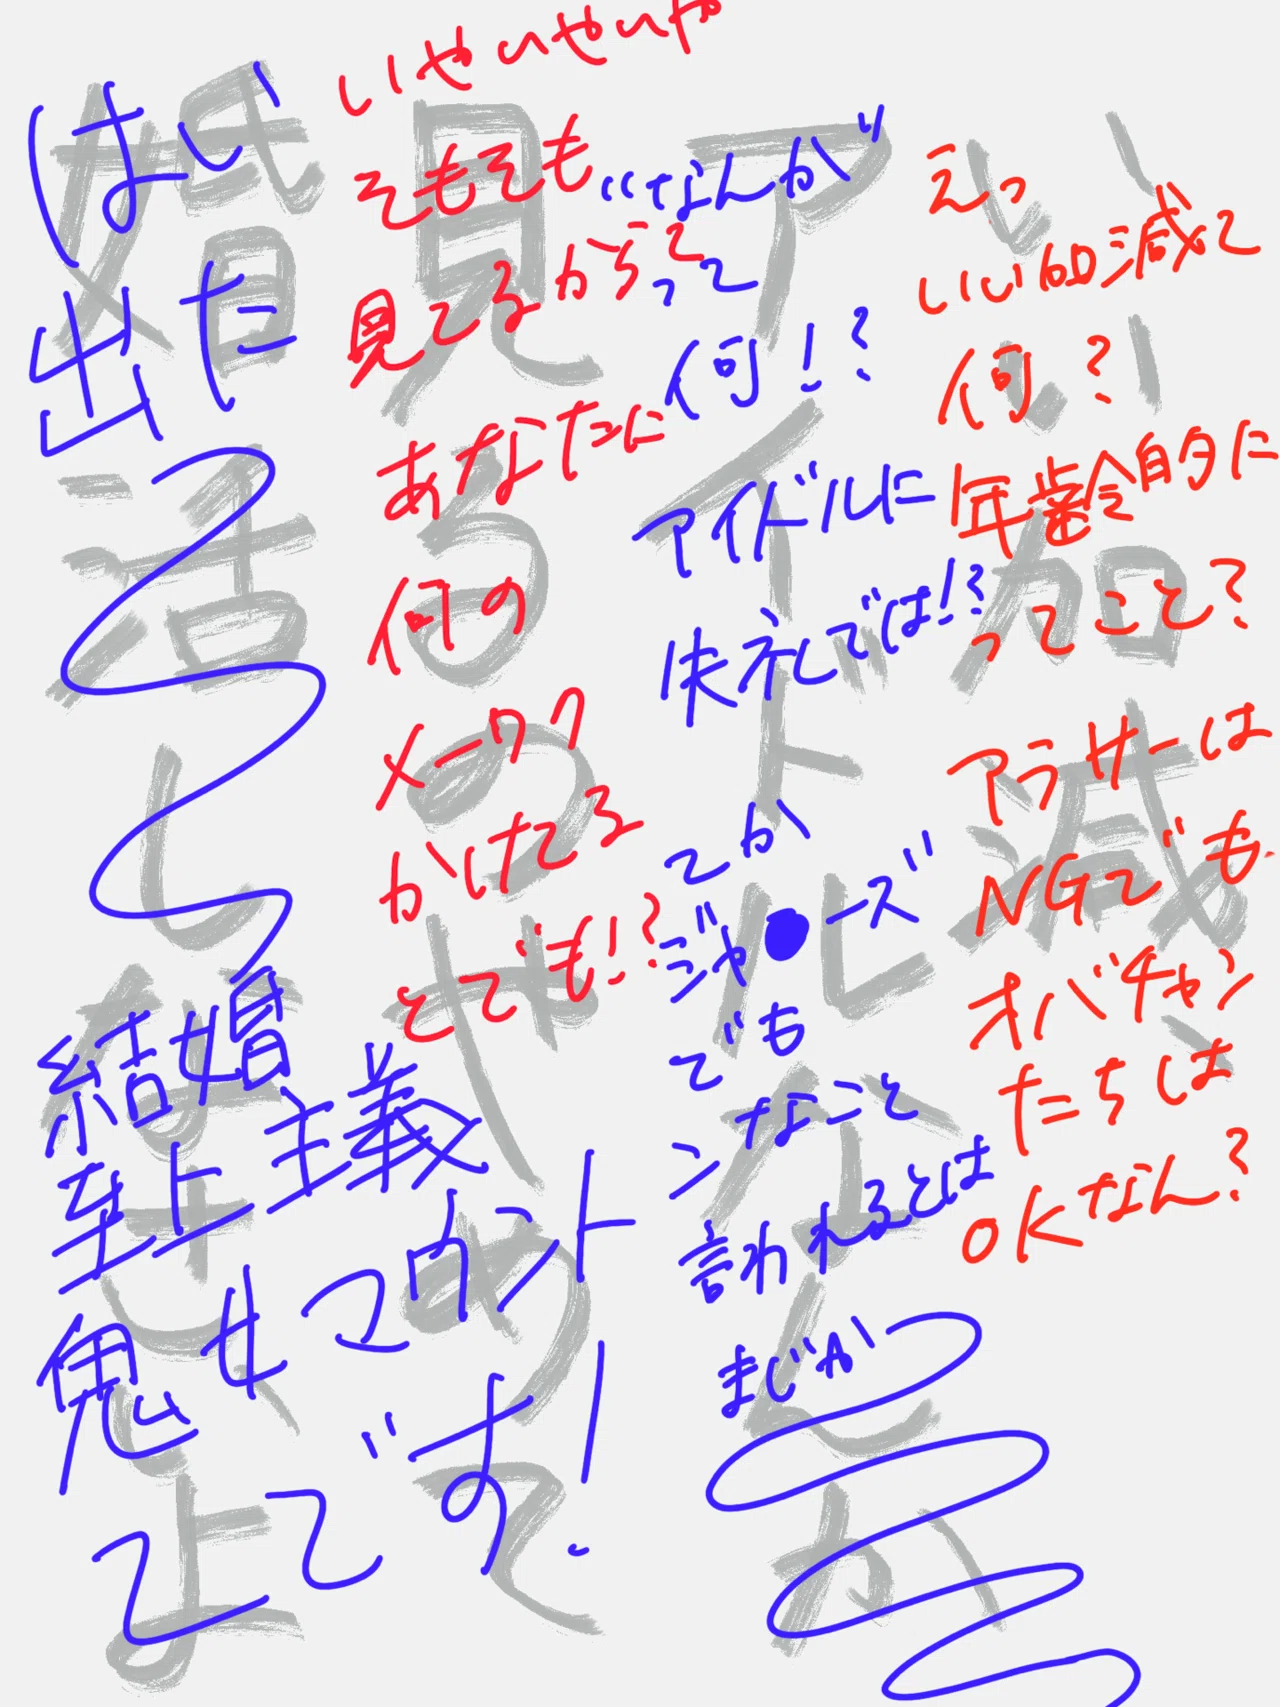 いい加減
アイドルなんか
見るのやめて
婚活しなさいよ
えっ
いい加減て
何?
年齢的に
ってこと?
アラサーは
NGでも
オバチャン
たちは
OKなん?
"なんか"
って
何!?
アイドルに
失礼では!?
てか
ジャ●ーズ
でも
ンなこと
言われるとは
まじか
いやいやいや
そもそも
見てるからって
あなたに
何の
メーワク
かけてる
とでも!?
はい
出た
結婚
至上主義
鬼女マウント
てです!